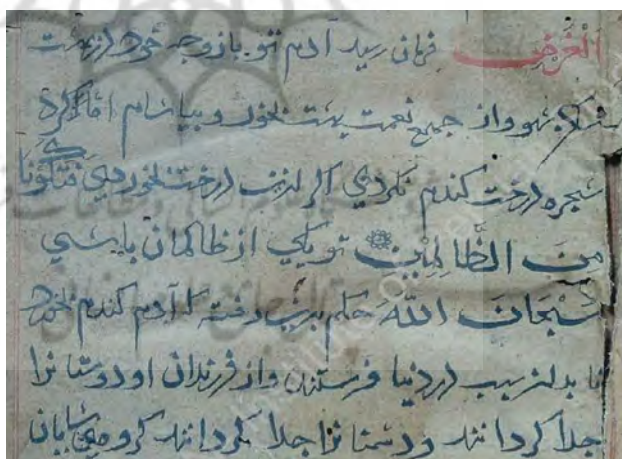 الغرض فرمان رسید آدم تو با زوجه خود در بهشت
شو و از جمیع نعمت بهشت بخور و بیاشام اما گرد
شجره درخت کندم نکردی اکر از این درخت بخوردی فتکونا
من الظالمین تو یکی از ظالمان باشی
سبحان الله حکم برین رفته که آدم کندم بخورد
تا بدین سبب در دنیا فرستند و از فرزندان او دوستانرا
جدا کردانند و دشمنانرا جدا کردانند کروهی